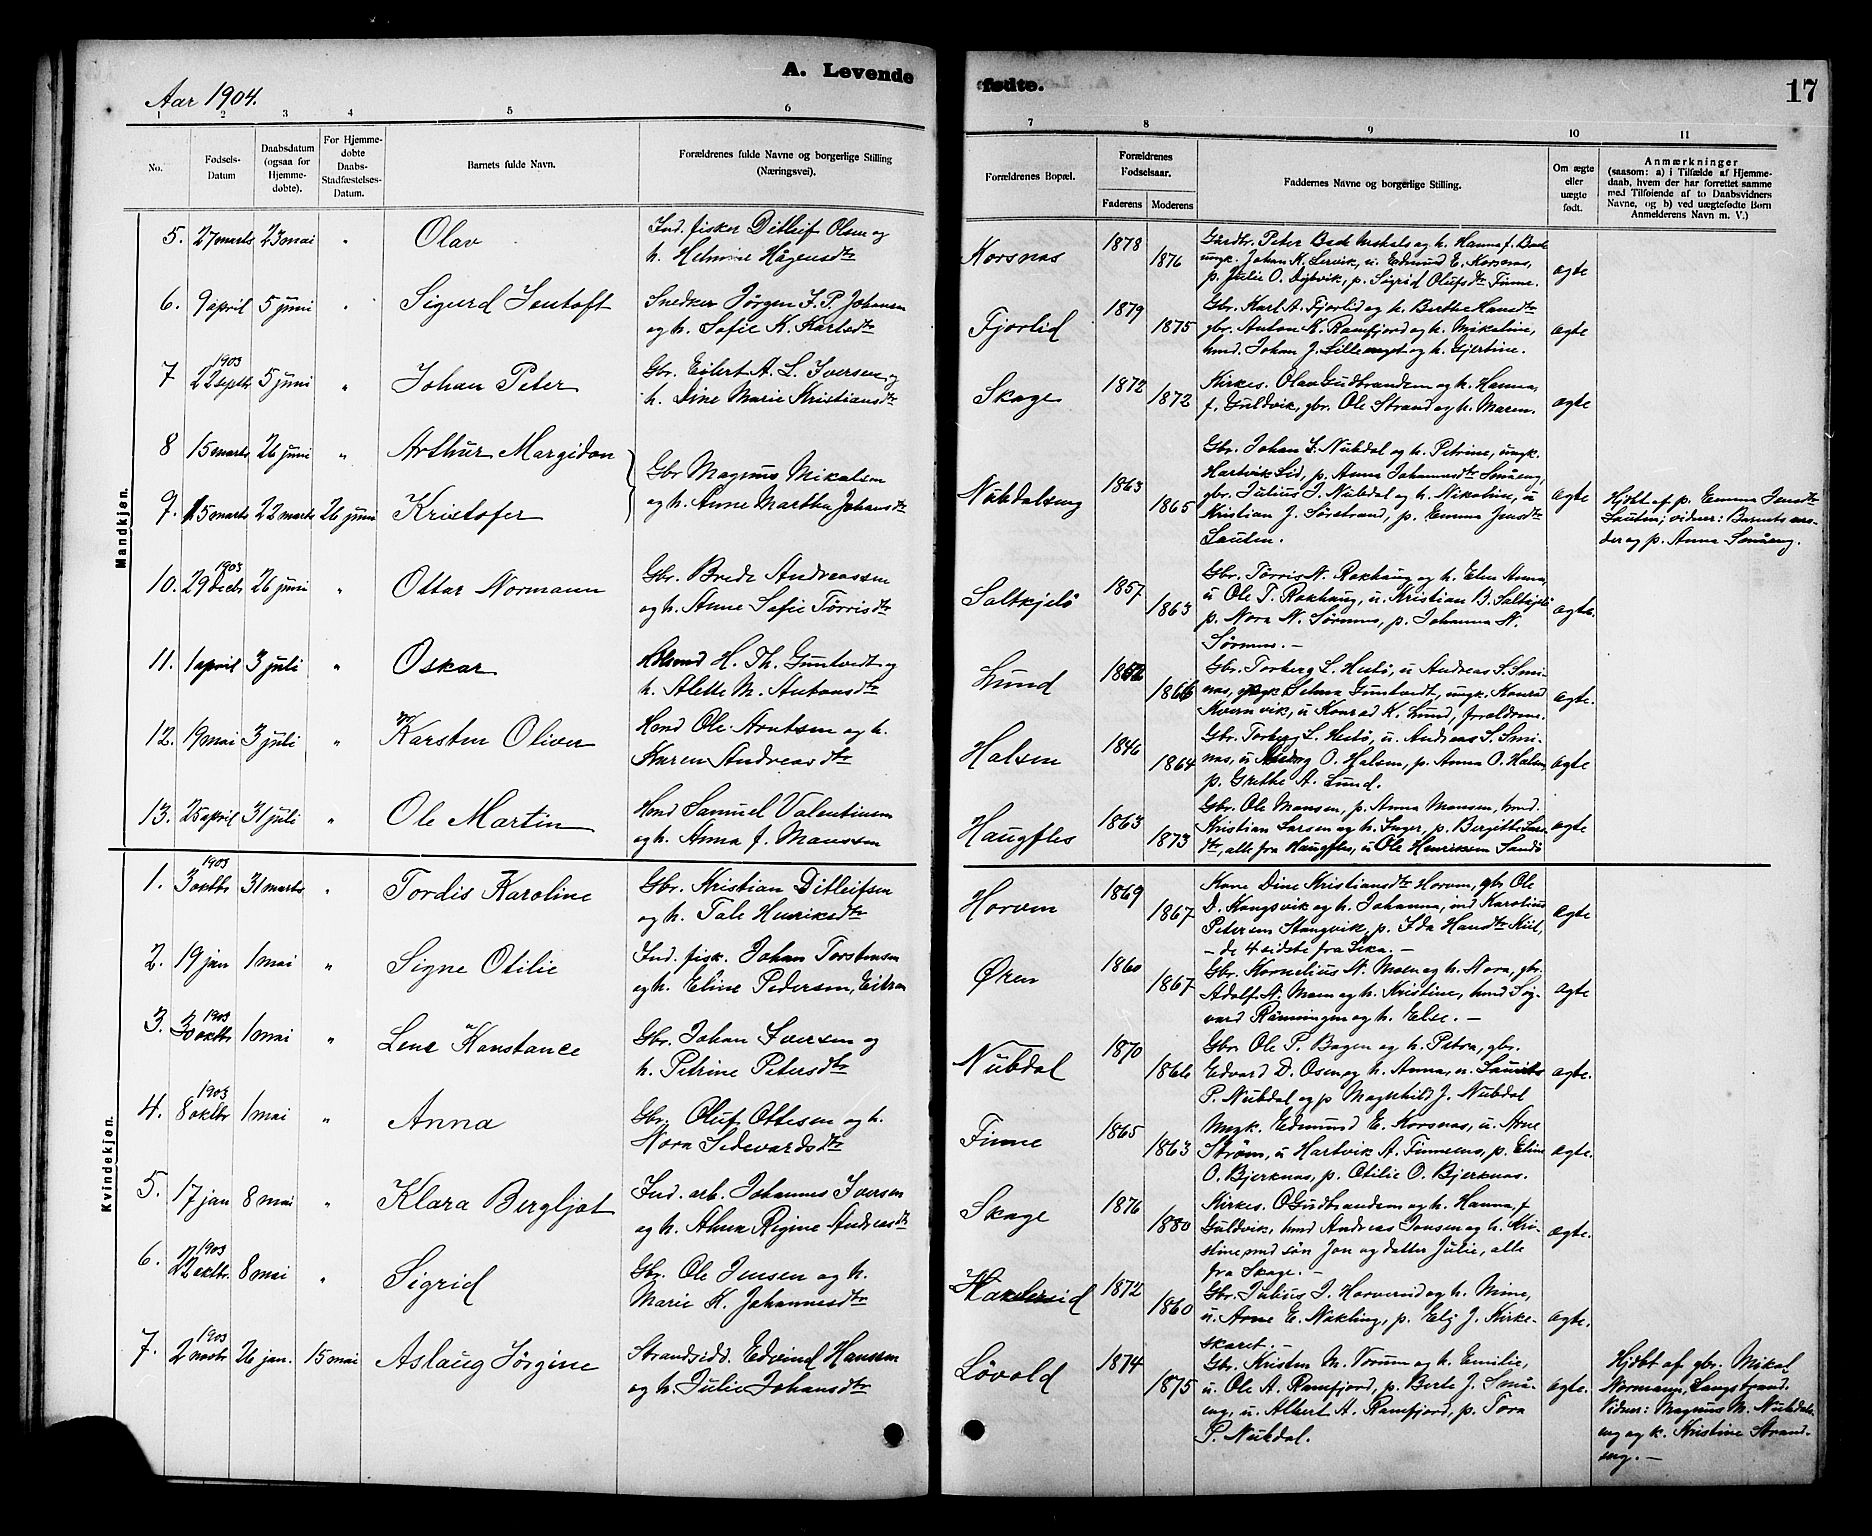 A. Levende
fødte.
17
Aar 1904.
1 2 3 4 5 6 7 8 9 10 11
No.
Fødsels-
Datum
Daabsdatum
(ogsaa for
Hjemme-
døbte).
For Hjemme-
døbte
Daabs-
Stadfæstelses-
Datum.
Barnets fulde Navn.
Forældrenes fulde Navne og borgerlige Stilling
(Næringsvei).
Forældrenes Bopæl.
Forældrenes
Fødselsaar.
Faderens
Moderens
Faddernes Navne og borgerlige Stilling.
Om ægte
eller
uægte
født.
Anmærkninger
(saasom: a) i Tilfælde af Hjemme-
daab, hvem der har forrettet samme
med Tilføiende af to Daabsvidners
Navne, og b) ved uægtefødte Børn
Anmelderens Navn m. V.)
Mandkjøn.
5. 27 marts 23 mai " Olav
Ind. fisker Ditleif Olsen og
h. Helmine Hågensdtr
Korsnas 1878 1876
ungk. Johan K. Lervik, u. Edmund E. Korsnas,
p. Julie O. Digtvik, p. Sigrid Olufsdtr Finne.
ægte
6. 9 april 5 juni " Sigurd Jentoft
Snedker Jørgen F. P. Johansen
og h. Sofie K. Karlsdtr
Fjorlid 1879 1875
Gbr. Karl A. Fjorlid og h. Berthe Hansdtr
gbr. Anton K. Ramfjord og h. Mikaline,
hmd. Johan J. Lilleenget og h. Gjertine.
ægte
7 1903 22 septb 5 juni " Johan Peter
Gbr. Eilert A. L. Iversen og
h. Dine Marie Kristiansdtr
Skage 1872 1872
Kirkes. Olav Gudbrandsen og h. Hanna,
f. Guldvik, gbr. Ole Strand og h. Maren.
ægte
8 15 marts 26 juni " Arthur Margidon
9. 15 marts 22 marts 26 juni Kristofer
Gbr Magnus Mikalsen
og h. Anne Martha Johansdtr
Nubdalseng 1863 1865
Gbr. Johan L. Nubdal og h. Petrine, ungk.
Hartvik Lid, p. Anna Johannesdtr Småeng,
gbr. Julius J. Nubdal og h. Nikoline, u
Kristian J. Sørstrand, p. Emma Jensdtr
Sauten.
ægte
Hjdbt af p. Emma Jensdtr
Sauten; vidner: Barnets mo-
der og p. Anna Småeng.
10. 1903 29 decb 26 juni " Ottar Normann
Gbr. Brede Andreassen
og h. Anne Sofie Tørrisdtr
Saltkjelø 1857 1863
Gbr. Tørris N. Rokhaug og h. Elen Anna,
u Ole T. Rokhaug, u. Kristian B. Saltkjelø
p. Nora N. Sørnes, p. Johanna N.
Sørnes. -
ægte.
11. 1 april 3 juli " Oskar
H. Th. Guntvedt og
h. Alette M. Antonsdtr
Lund 1852 1866
Gbr. Torberg L. Hestø, u Andreas S. Smi-
nas, Selma Guntvedt, ungk. Konrad
Kvernvik, u Konrad K. Lund, forældrene.
ægte.
12. 19 mai 3 juli " Karsten Oliver
Hmd Ole Arntsen og h.
Karen Andreasdtr
Halsen 1846 1864
Gbr. Torberg L. Hestø, u. Andreas S. Smi-
nas, u O. Halsen, p. Anna O. Halsen,
p. Grethe A. Lund.
ægte
13. 25 april 31 juli " Ole Martin
Hmd Samuel Valentinsen
og h. Anna f. Mansen
Haugfles 1863 1873
Gbr. Ole Mansen, p. Anna Mansen, hmd.
Kristian Larsen og h. Inger, p. Bergitte Lars-
dtr, alle fra Haugfles, u Ole Henriksen Sandø
ægte
Kvindekjøn.
1. 1903 3 oktbr 31 marts " Tordis Karoline
Gbr. Kristian Ditleifsen
og h. Tale Henriksdtr
Horven 1869 1867
Kone Dine Kristiansdtr Horven, gbr Ole
D. Kongsvik og h. Johanna, ind Karolius
Petersen Stangvik, p. Ida Hansdtr Kiil,
- de 4 sidste fra Leka. -
ægte
2. 19 jan 1 mai " Signe Otilie
Ind. fisk. Johan Torstensen
og h. Eline Pedersen,
Øren 1860 1867
Gbr. Kornelius N. Moen og h. Nora, gbr.
Adolf N. Moen og h. Kristine, hmd Sig-
vard Rånningen og h. Else. -
ægte
3. 1903 30 oktbr 1 mai " Lene Konstance
Gbr. Johan Iversen og
h. Petrine Petersdtr
Nubdal 1870 1866
Gbr. Ole P. Bogen og h. Petra, gbr.
Edvard D. Osen og h. Anna, u. Laurits
P. Nubdal og p Magnhild J. Nubdal
ægte.
4. 1903 8 oktbr 1 mai " Anna
Gbr. Oluf Ottesen og h.
Nora Sedevardsdtr
Finne 1865 1863
Ungk. Edmund E. Korsnas, u. Arne
Strøm, u Hartvik A. Finnenes, p. Eline
O. Bjerknas, p. Otilie O. Bjerknas.
ægte.
5. 17 jan 8 mai " Klara Bergljot
Ind. arb. Johannes Iversen
og h. Regine Andreasdtr
Skage 1876 1880
Kirkes. O Gudbrandsen og h. Hanna, f
Guldvik, hmd Andreas Jonsen og h. Kri-
stine med søn Jon og datter Julie, alle
fra Skage. -
ægte.
6. 1903 22 oktbr. 8 mai " Sigrid
Gbr. Ole Jensen og h.
Marie K. Johannesdtr
1872 1860
Gbr. Julius J. Horverid og h. Mine,
u. Arne E. Nakling, p. Elij J. Kirke-
skaret. -
ægte.
7. 1903 2 novbr 26 jan. 15 mai Aslaug Jørgine
Strandsidd. Edvind Hansen
og h. Julie Johansdtr
Løvold 1874 1875
Gbr. Kristen M. Vorum og h. Emilie,
u. Ole A. Ramfjord, p. Berte J. Små-
eng, u. Albert A. Ramfjord, p. Tora
P. Nubdal.
ægte.
Hjdbt af gbr. Mikal
Normann, Langstrand.
Vidner: Magnus M. Nubdals-
eng og k. Kristine Strand-
eng. -